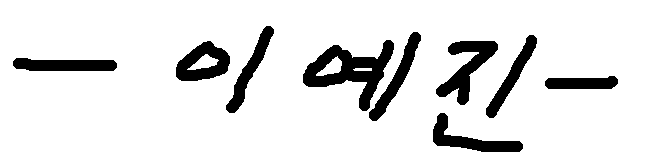 - 이예진 -